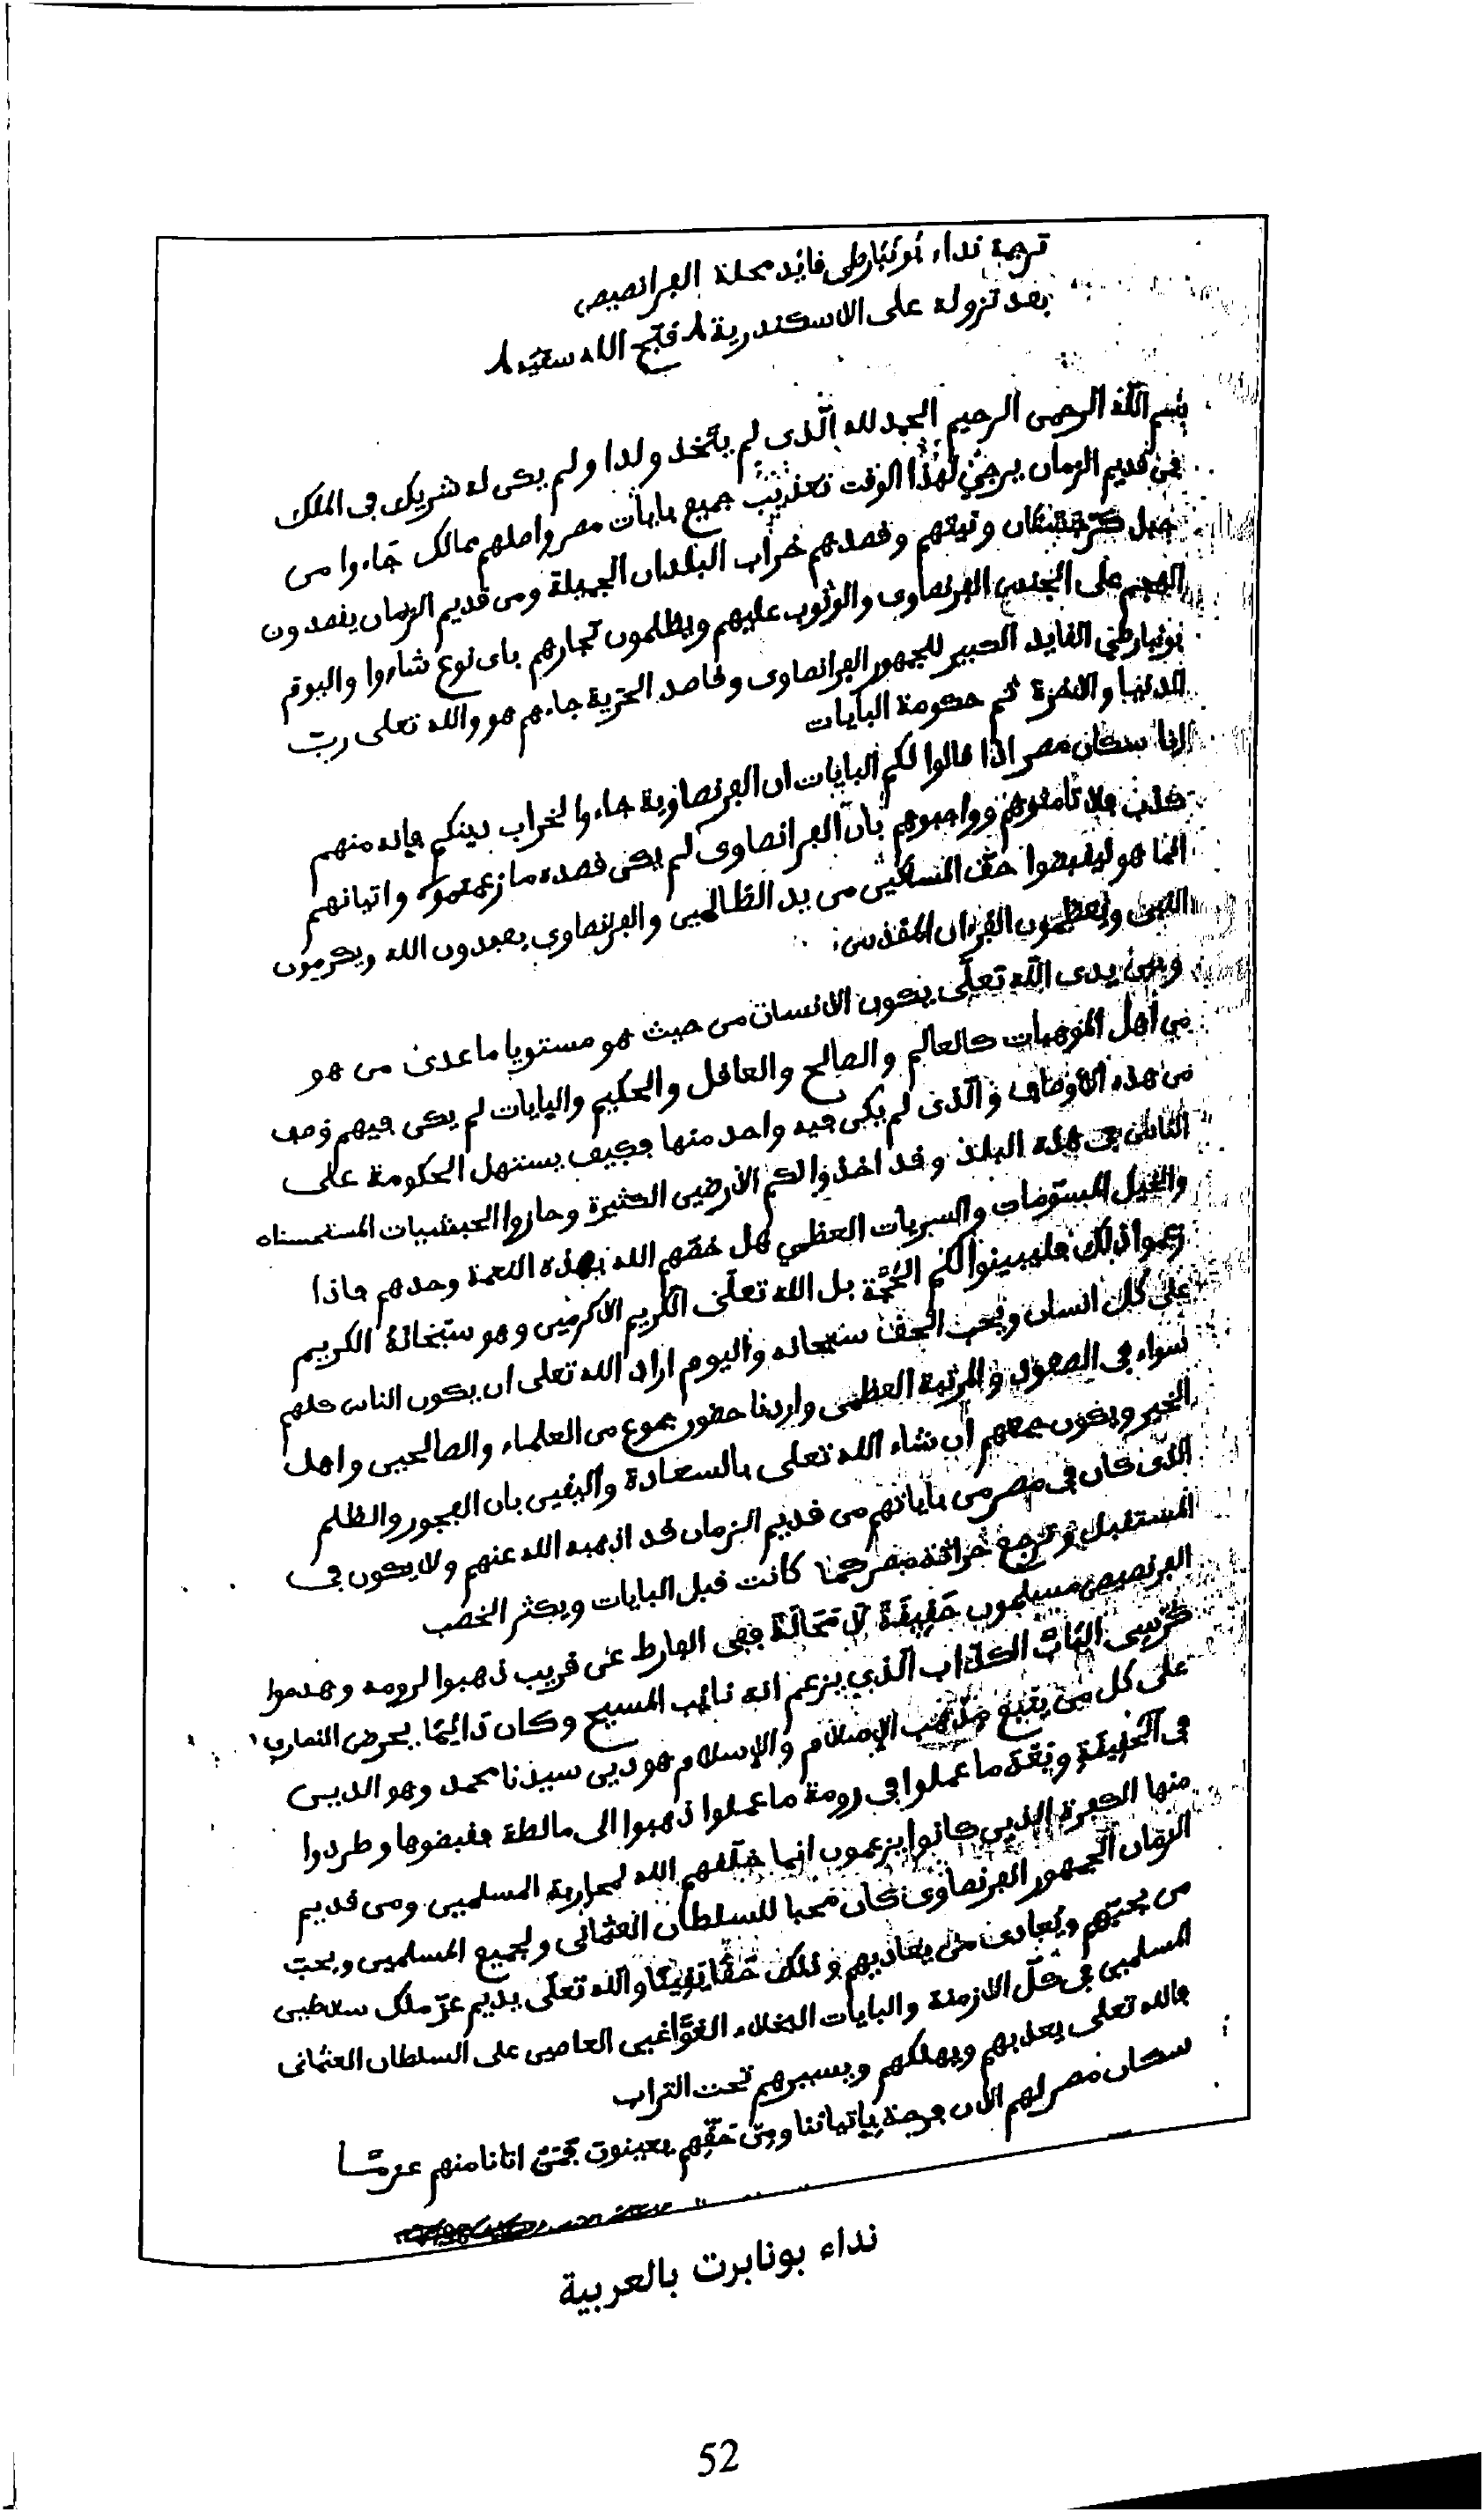 ترجمة نداء بونبارطى فايد محلة البرانصيص
بعد نزوله على الاسكندرية فبح الله سعيه
بسم الله الرحمن الرحيم الحمد لله الذى لم يتخذ ولدا ولم يكن له شريك فى الملك
فى قديم الزمان يرجى لهذا الوقت تعذيب جميع بايات مصر واصلهم ممالك جاءوا من
جبل ونيتهم وقصدهم خراب البلدان الجميلة ومن قديم الزمان يقصدون
الهجم على الجنس الفرنصاوى والوثوب عليهم ويظلمون تجارهم باى نوع شاءوا واليوم
بونبارطى القايد الكبير للجمهور الفرانصاوى وقاصد الحرية جاءهم هو والله تعلى رب
الدنيا والاخرة ثم حكومة البايات
ايا سكان مصر اذا قالوا لكم البايات ان الفرنصاوية جاءوا لخراب دينكم فانه منهم
كذب فلا تامنوهم وواجبوهم بان الفرانصاوى لم يكن قصده ما زعمتموه واتيانهم
انما هو ليقبضوا حق المساكين من يد الظالمين والفرنصاوى يعبدون الله ويكرمون
النبى ويعظمون القرءان المقدس
وبين يدى الله تعلى يكون الانسان من حيث هو مستويا ماعدى من هو
من أهل الموهبات كالعالم والصالح والعاقل والحكيم والبايات لم يكن فيهم وصف
من هذه الاوصاف والذى لم يكن فيه واحد منها فكيف يستهل الحكومة على
الناس فى هذه البلد وقد اخذوا لكم الارضين الكثيرة وحازوا الحبشيات المستحسناه
والخيل المسومات والسريات العظمى هل خصهم الله بهذه النعمة وحدهم فاذا
زعموا ذلك فليبينوا لكم الحجة بل الله تعلى اكرم الاكرمين وهو سبحانه الكريم
على كل انسان ويحب الحق سبحانه واليوم اراد الله تعلى ان يكون الناس كلهم
سواء فى الصعود والمرتبة العظمى واردنا حضور مجموع من العلماء والصالحين واهل
الخير ويكون جمعهم ان شاء الله تعلى بالسعادة واليقين بان الفجور والظلم
الذى كان فى مصر من باياتهم من قديم الزمان قد اذهبه الله عنهم ولا يكون فى
المستقبل وترجع مصر كما كانت قبل البايات ويكثر الخصب
الفرنصيص مسلمون حقيقة لا محالة ففى الفارط عن قريب ذهبوا لرومه وهدموا
كرسى الباب الكذاب الذي يزعم انه نائب المسيح وكان دائيما يحرض النصارى
على كل من يتبع مذهب الإسلام والإسلام هو دين سيدنا محمد وهو الدين
فى الحقيقة وبعد ما عملوا فى رومة ما عملوا ذهبوا الى مالطة فقبضوها وطردوا
منها الكفرة الذين كانوا يزعمون انما خلقهم الله لمحاربة المسلمين ومن قديم
الزمان الجمهور الفرنصاوى كان محبا للسلطان العثمانى ولجميع المسلمين ويحب
من يحبهم ويعادى من يعاديهم وذلك حقا يقينا والله تعلى يديم عز ملك سلاطين
المسلمين فى كل الازمنة والبايات البخلاء العاصين على السلطان العثمانى
فالله تعلى يعذبهم ويهلكهم ويسيرهم تحت التراب
سكان مصر لهم الان فرجة بإتياننا ومن حقهم يعينون اتانا منهم
نداء بونابرت بالعربية
52